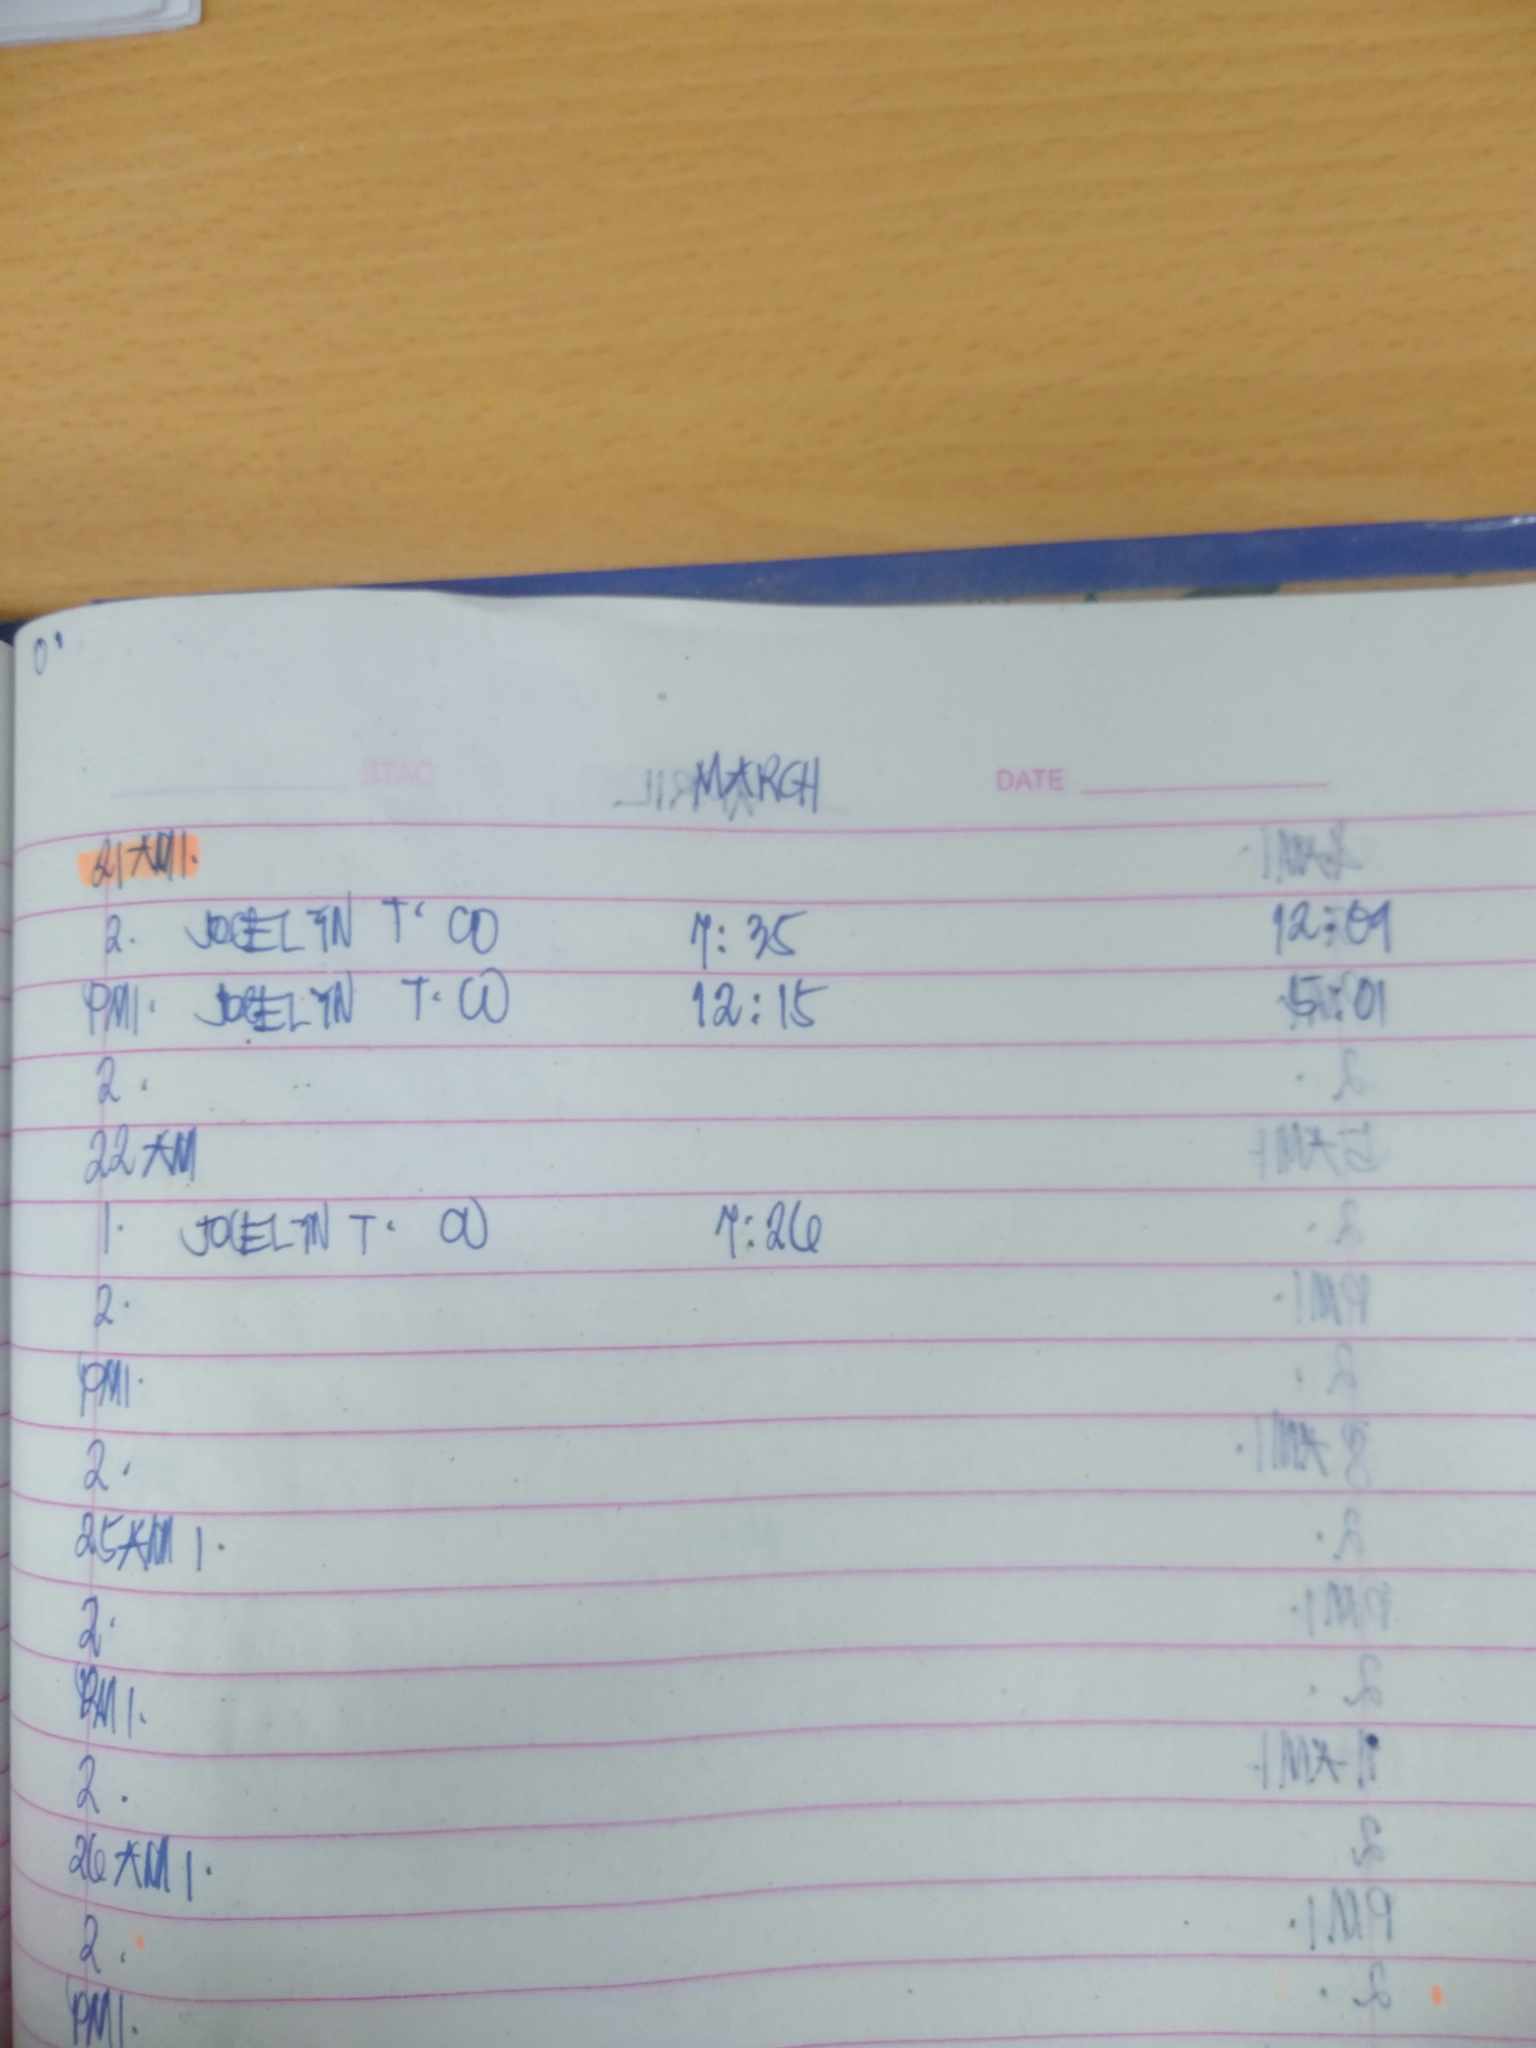 MARCH DATE
21 AM 1.
2. JOCELYN T. CO 7:35 12:09
PM 1. JOCELYN T. CO 12:15 5:01
2.
22 AM
1. JOCELYN T. CO 7:26
2.
PM 1.
2.
25 AM 1.
2.
PM 1.
2.
26 AM 1.
2.
PM 1.